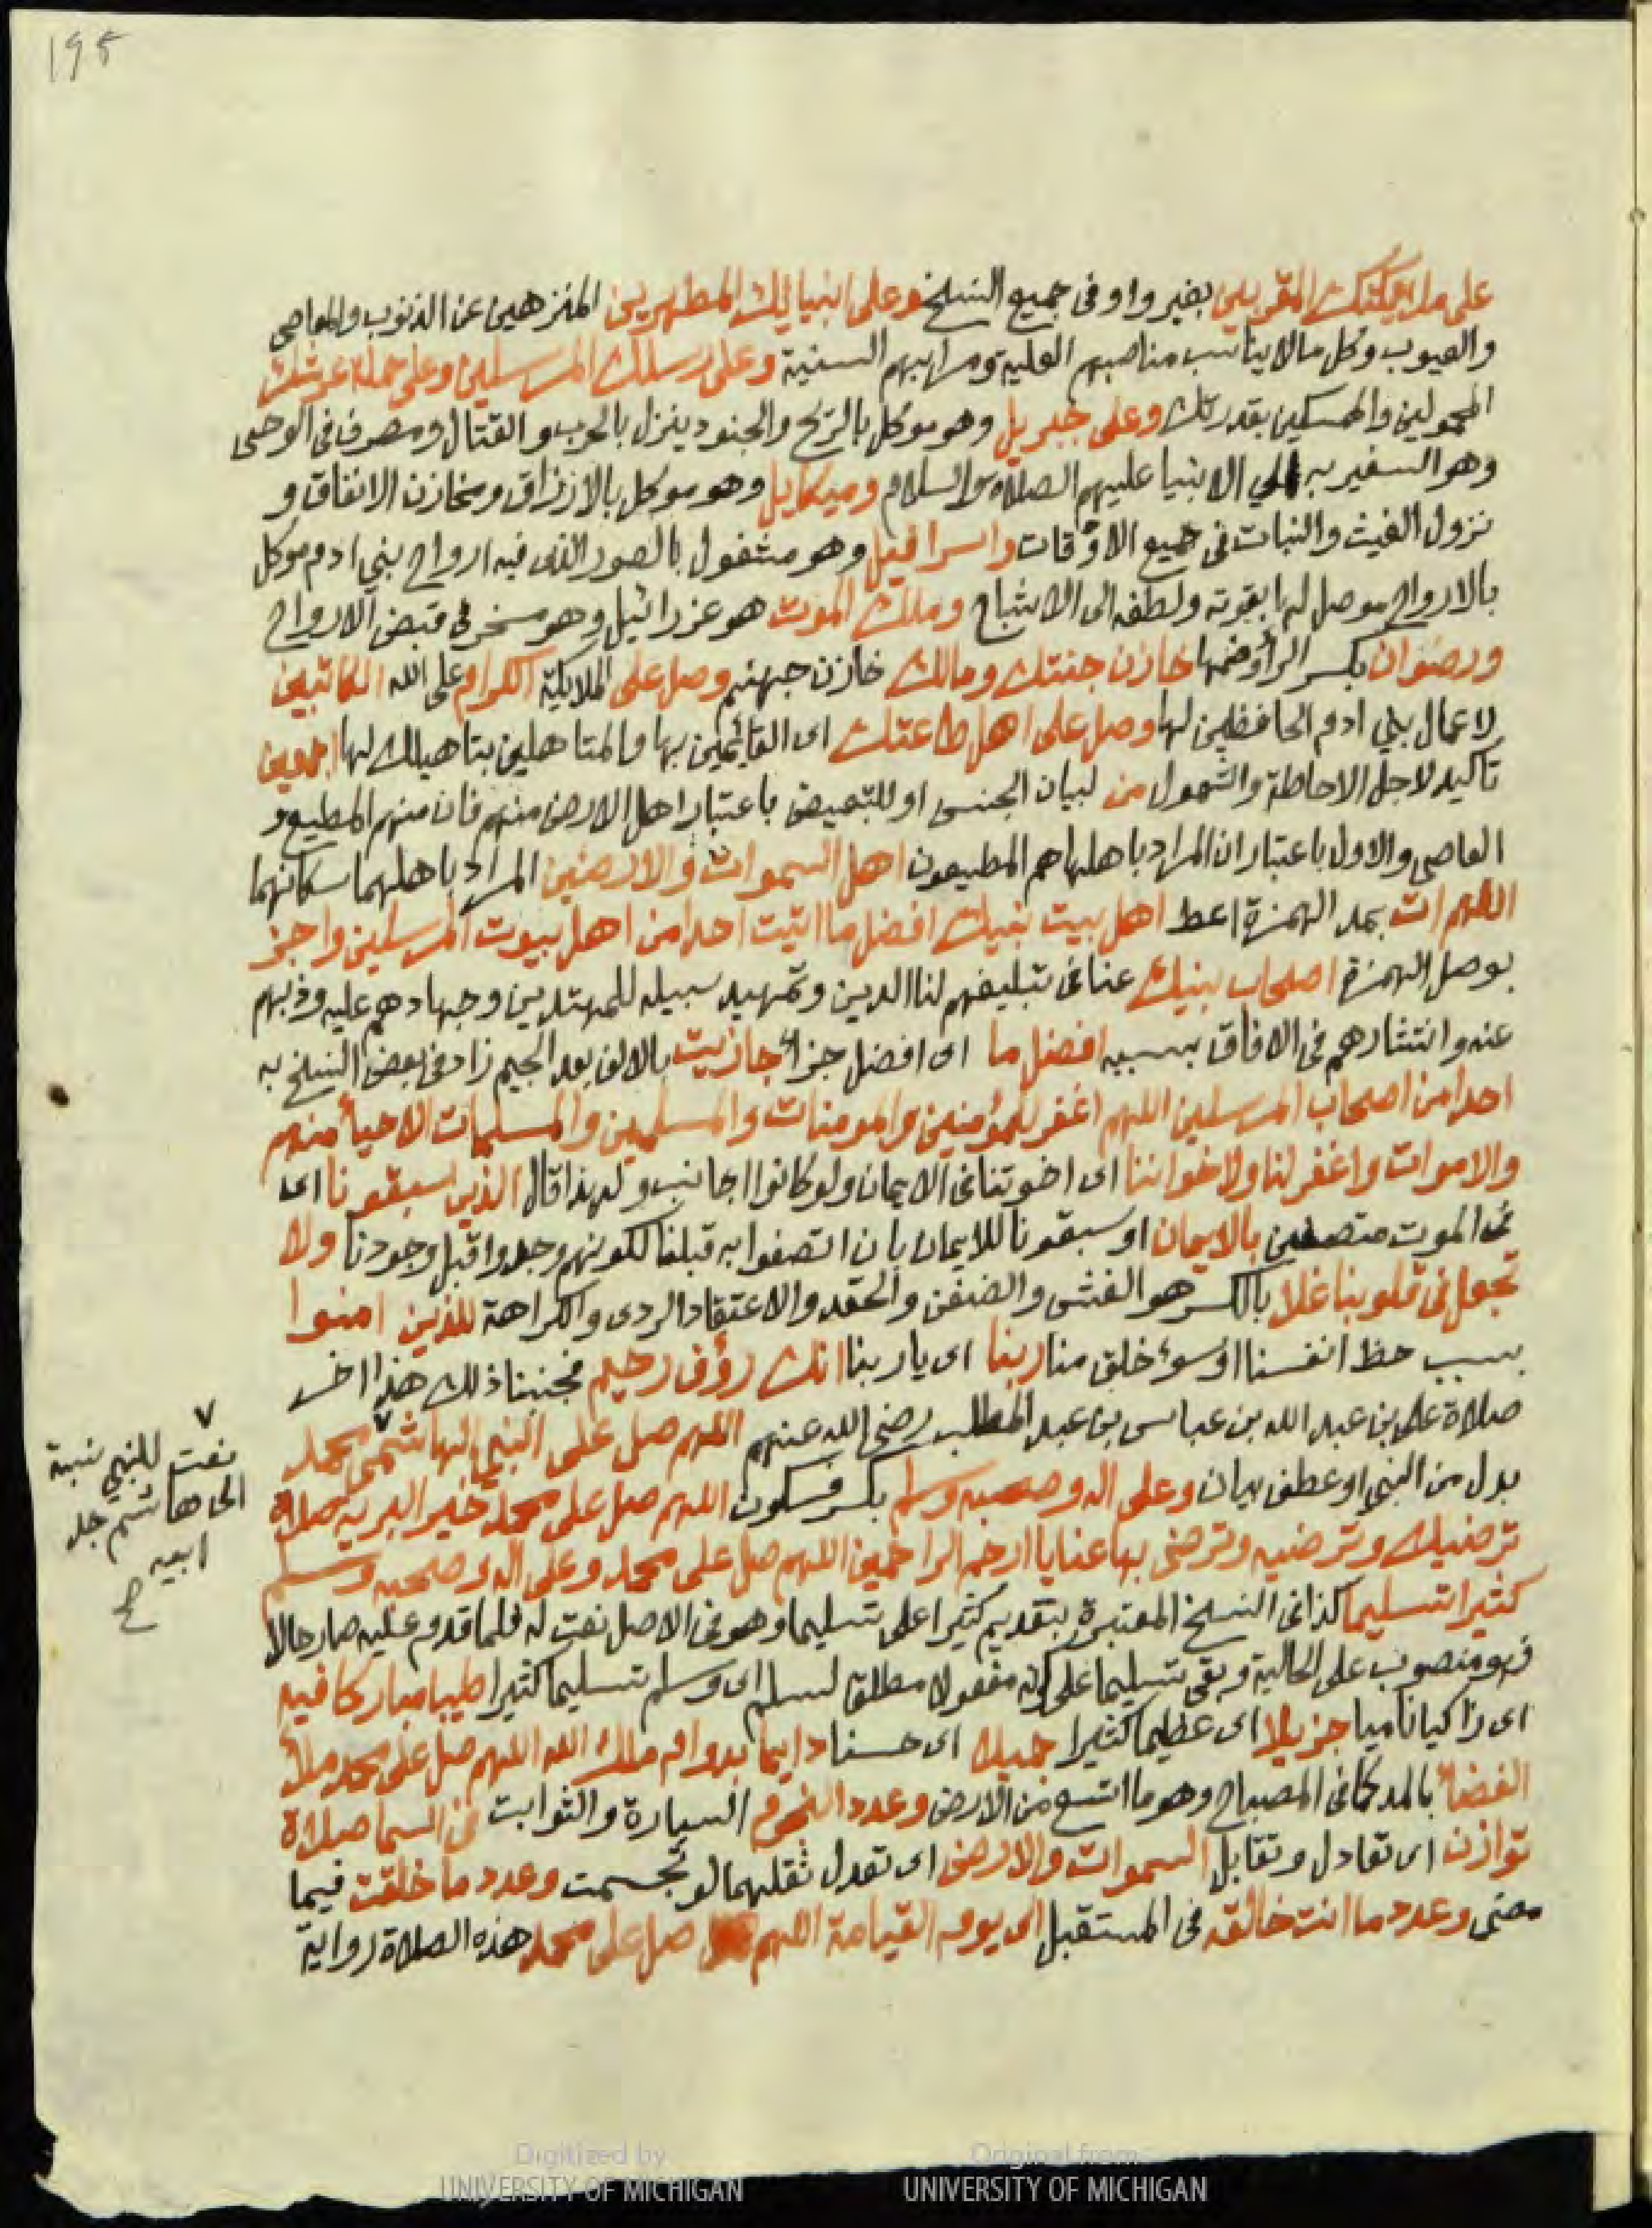 195
على ملايكتك المقربين بغير واو في جميع النسخ وعلى انبيايك المطهرين المنزهين عن الذنوب والمعاصي
والعيوب وكل مالا يناسب مناصبهم العلية ومراتبهم السنية وعلى رسلك المرسلين وعلى حملة عرشك
المحمولين والممسكين بقدرتك وعلى جبريل وهو موكل بالريح والجنود ينزل بالحرب والقتال ومصرف في الوحى
وهو السفير به الي الانبيا عليهم الصلاة والسلام وميكايل وهو موكل بالارزاق ومخازن الانفاق و
نزول الغيث والنبات في جميع الاوقات واسرافيل وهو مشغول بالصور الذى فيه ارواح بني ادم موكل
بالارواح موصل لها بقوته ولطفه الى الاشباح وملك الموت هو عزرائيل وهو مسخر في قبض الارواح
ورضوان بكسر الرأ وضمها خازن جنتك ومالك خازن جهنم وصل على الملايكة الكرام على الله الكاتبين
لاعمال بني ادم الحافظين لها وصل على اهل طاعتك اى القايمين بها والمتاهلين بتاهيلك لها اجمعين
تاكيد لاجل الاحاطة والشمول من لبيان الجنس او للتبعيض باعتبار اهل الارض منهم فان منهم المطيع و
العاصى والاول باعتبار ان المراد باهلها هم المطيعون اهل السموات والارضين المراد باهلهما سكانهما
اللهم ات بمد الهمزة اعط اهل بيت نبيك افضل ما اتيت احدا من اهل بيوت المرسلين واجز
بوصل الهمزة اصحاب نبيك عنا فى تبليغهم لنا الدين وتمهيد سبيله للمهتدين وجهادهم عليه وذبهم
عنه وانتشارهم في الافاق بسببه افضل ما اى افضل جزأ جازيت بالالف بعد الجيم زاد في بعض النسخ به
احدا من اصحاب المرسلين اللهم اغفر للمؤمنين والمومنات والمسلمين والمسلمات الاحيأ منهم
والاموات واغفر لنا ولاخواننا اى اخوتنا فى الايمان ولو كانوا اجانب ولهذا قال الذين سبقونا اى
الموت متصفين بالايمان او سبقونا للايمان بان اتصفوا به قبلنا لكونهم وجدوا قبل وجودنا ولا
تجعل فى قلوبنا غلا بالكسر هو الغش والضغن والحقد والاعتقاد الردى والكراهة للذين امنوا
بسبب حظ انفسنا او سوء خلق منا ربنا اى يا ربنا انك رؤف رحيم فجنبنا ذلك هذا اخر
صلاة على بن عبد الله بن عباس بن عبد المطلب رضى الله عنهم اللهم صل على النبي الهاشمى محمد
بدل من النبي او عطف بيان وعلى اله وصحبه وسلم بكسر فسكون اللهم صل على محمد خير البرية صلاة
ترضيك وترضيه وترضى بها عنا يا ارحم الراحمين اللهم صل على محمد وعلى اله وصحبه وسلم
كثيرا تسليما كذا فى النسخ المعتبرة بتقديم كثيرا على تسليما وهو فى الاصل نعت له فلما قدم عليه صار حالا
فهو منصوب على الحالية وبقى تسليما على كونه مفعولا مطلقا لسلم اى وسلم تسليما كثيرا طيبا مباركا فيه
اى زاكيا ناميا جزيلا اى عظيما كثيرا جميلا اى حسنا دايما بدوام ملك الله اللهم صل على محمد ملأ
الفضأ بالمد كما فى المصباح وهو ما اتسع من الارض وعدد النجوم السيارة والثوابت فى السما صلاة
توازن اى تعادل وتقابل السموات والارض اى تعدل ثقلهما لو تجسمت وعدد ما خلقت فيما
مضى وعدد ما انت خالقه فى المستقبل الى يوم القيامة اللهم صل على محمد هذه الصلاة رواية
نعت للنبي نسبة
الى هاشم جد
ابيه
Digitized by
UNIVERSITY OF MICHIGAN
Original from
UNIVERSITY OF MICHIGAN